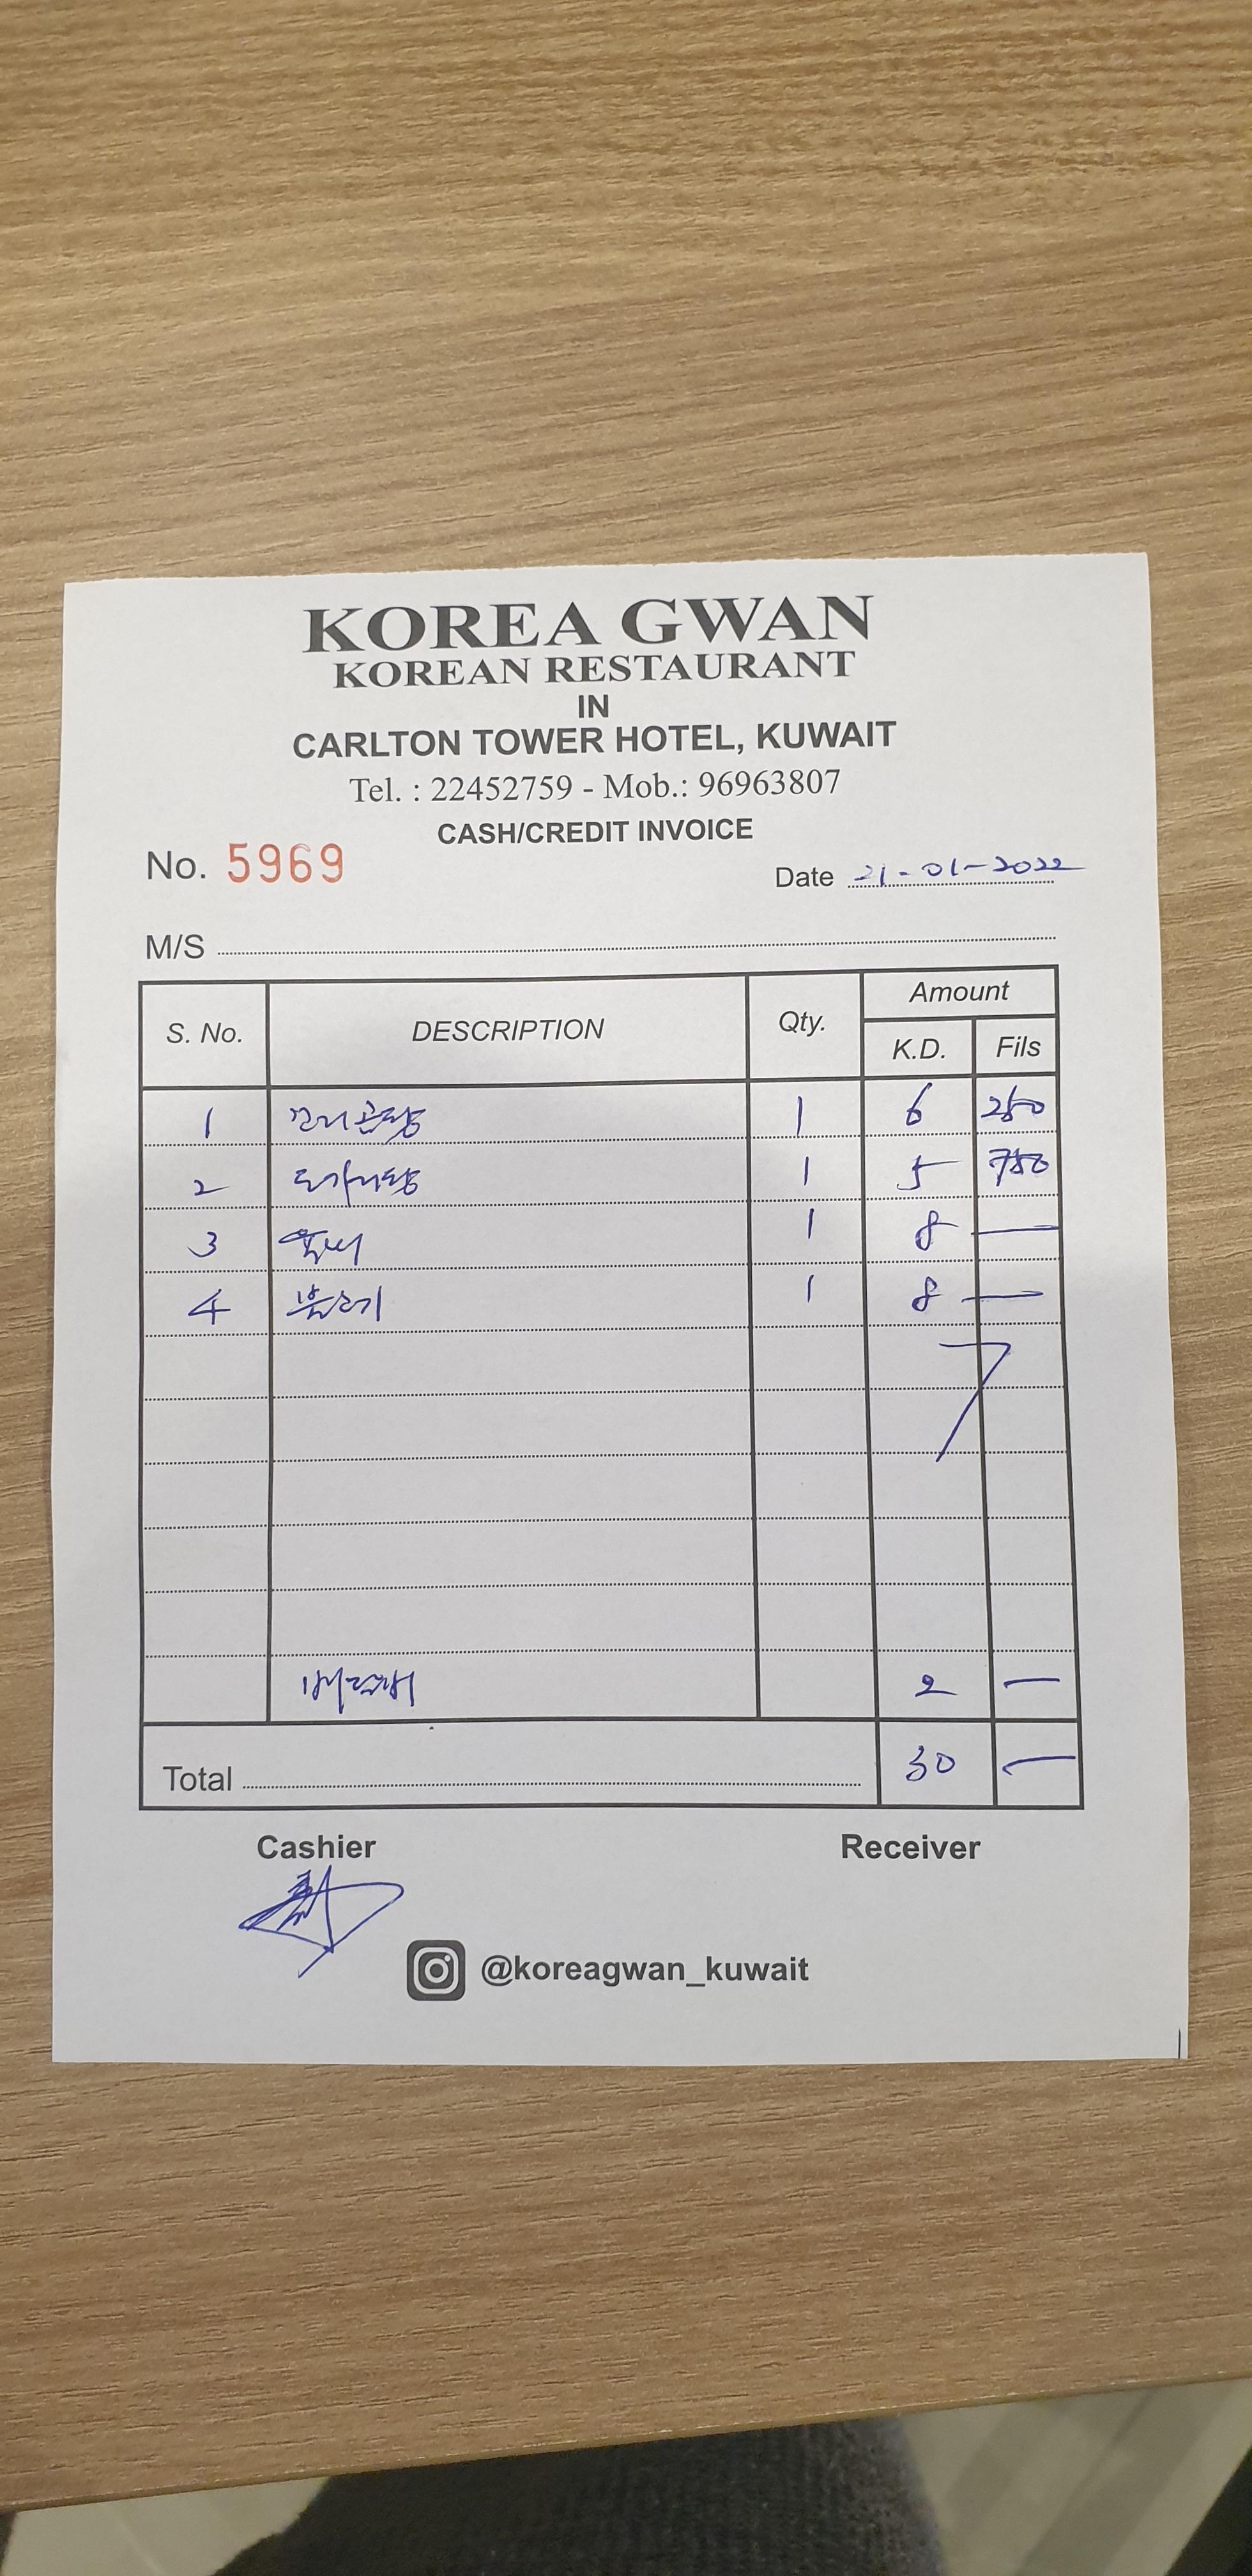 KOREA GWAN
KOREAN RESTAURANT
IN
CARLTON TOWER HOTEL, KUWAIT
Tel. : 22452759 - Mob.: 96963807
CASH/CREDIT INVOICE
No. 5969
Date 21-01-2022
M/S
S. No. DESCRIPTION Qty. Amount
K.D. Fils
1 꼬리곰탕 1 6 250
2 도가니탕 1 5 750
3 1 8 —
4 불고기 1 8 —
2 —
Total 30 —
Cashier Receiver
@koreagwan_kuwait